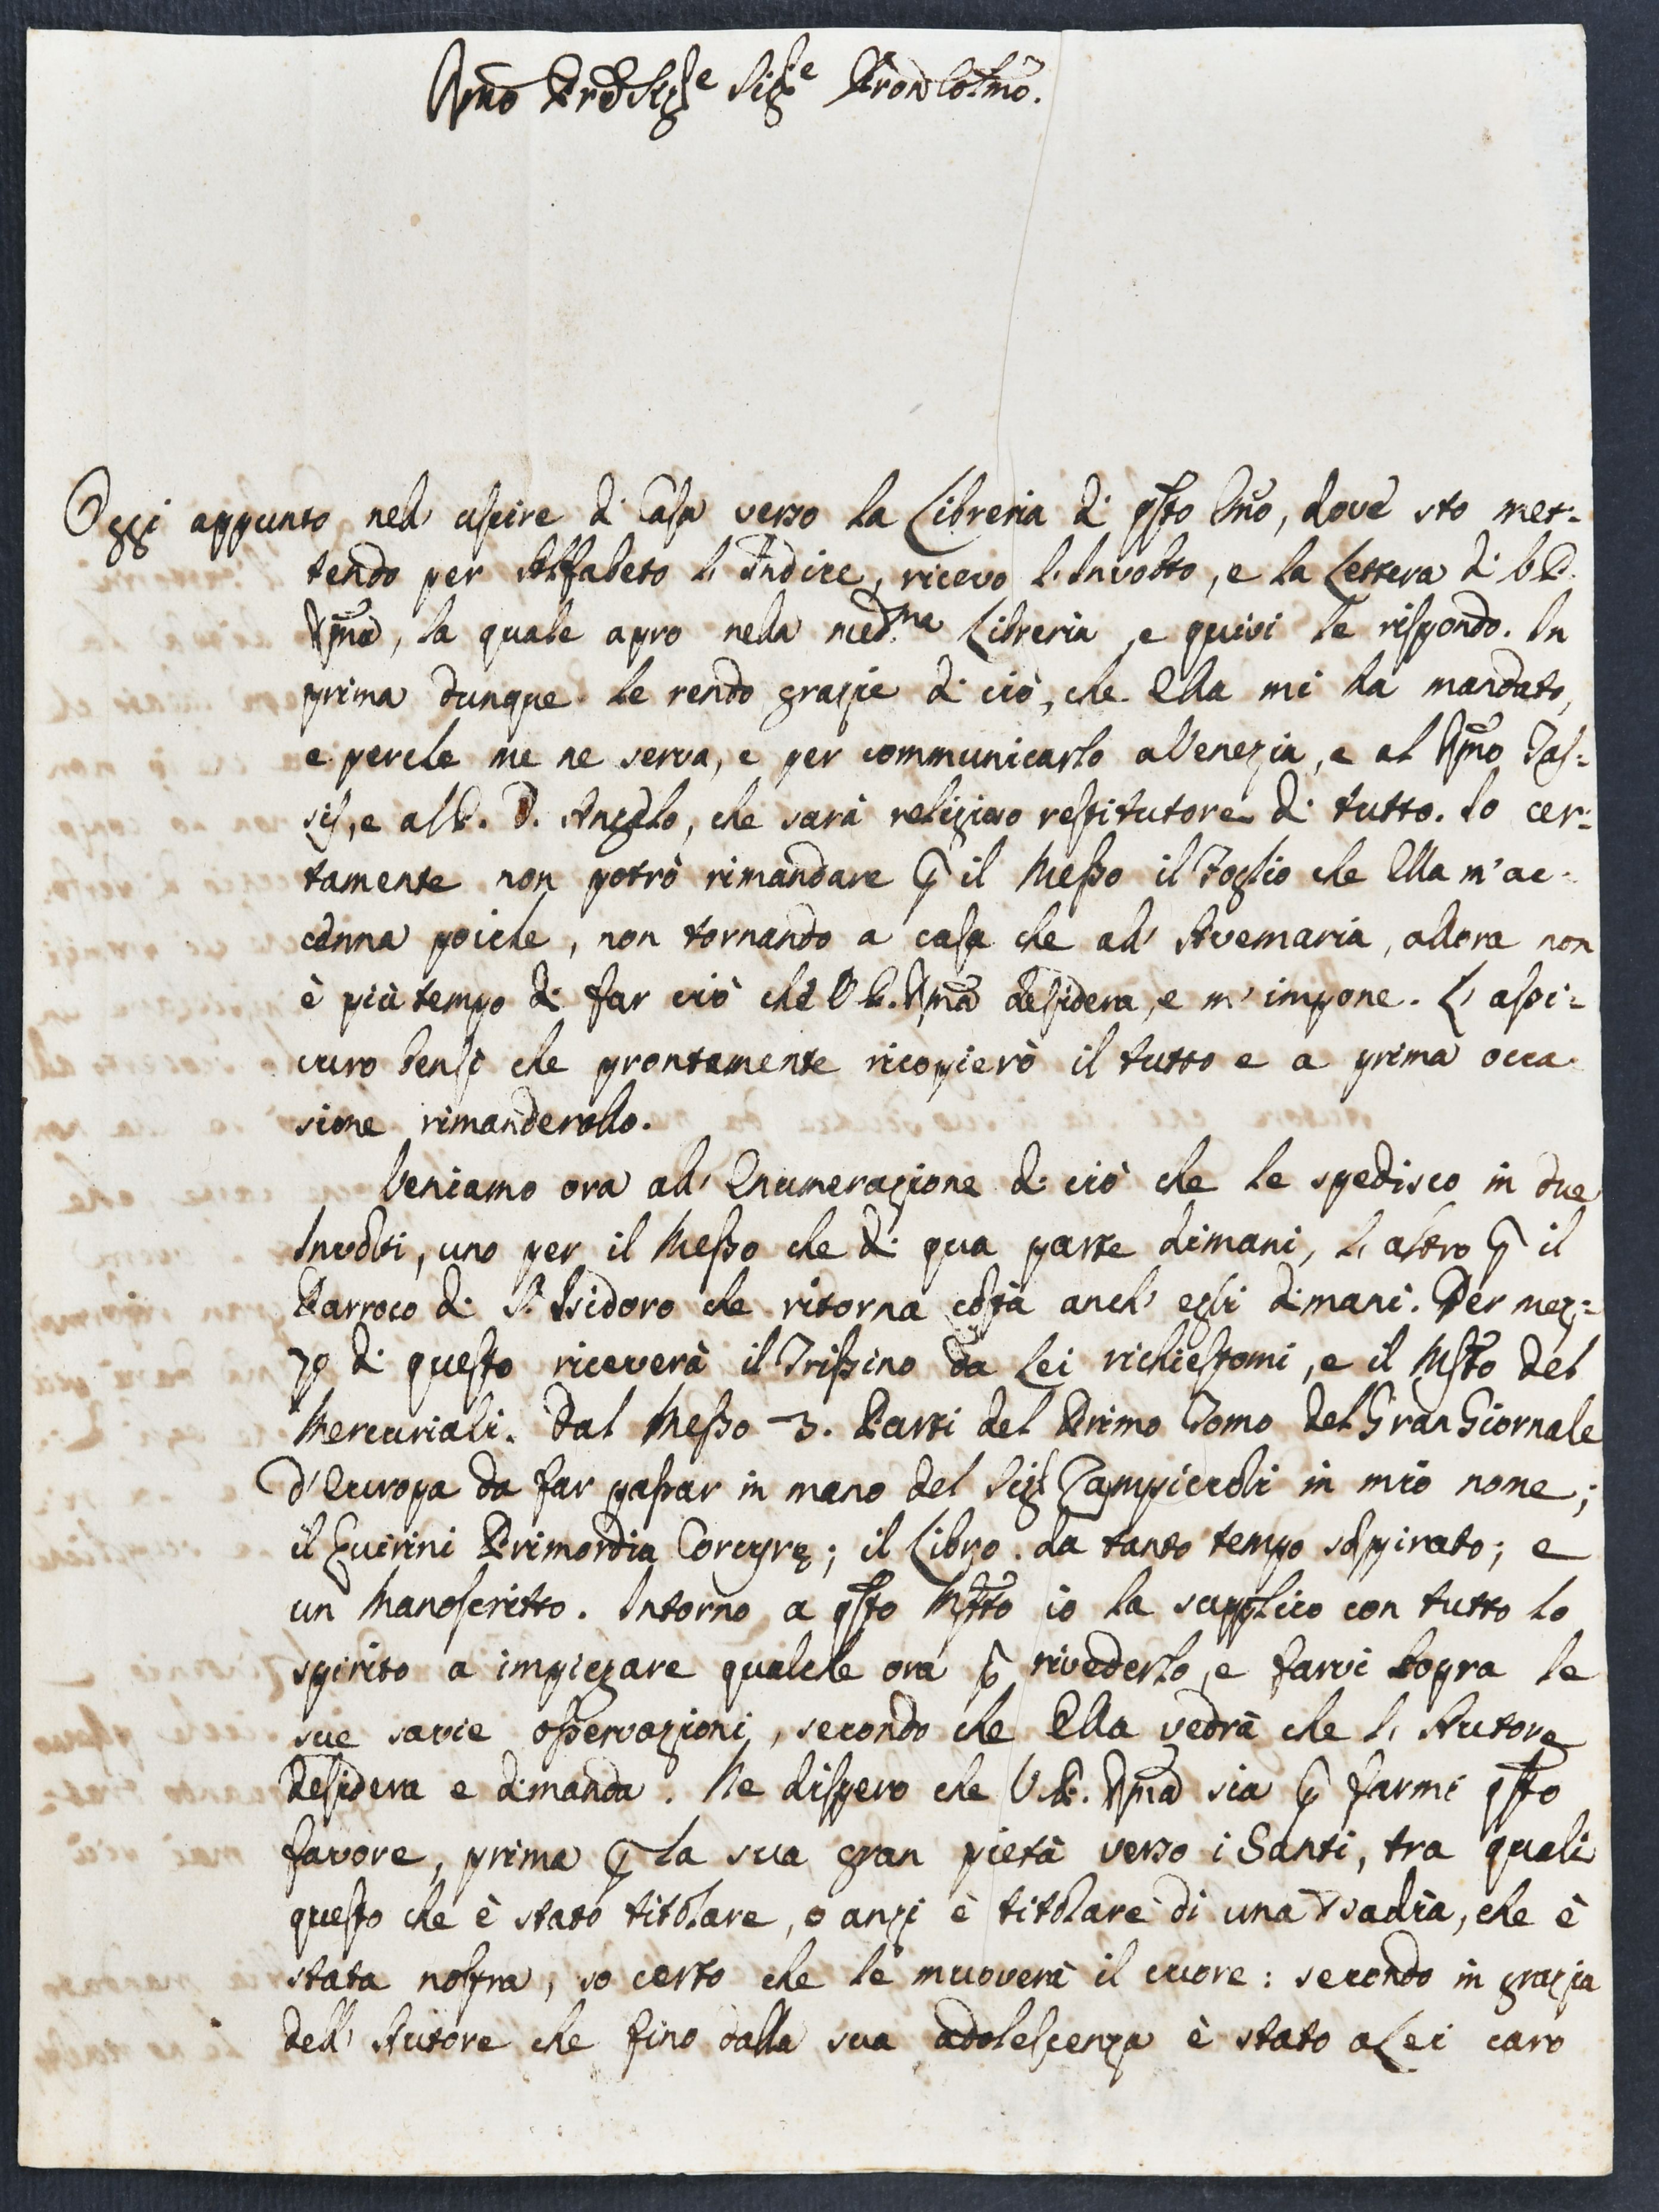 Rmo Prē Sigre Sigre Pron Colmo.
Oggi appunto nell' uscire di Casa verso la Libreria di qsto Emo, dove sto met=
tendo per Alfabeto l' Indice, ricevo l' Involto, e la Lettera di V. P.
Rma, la quale apro nella medma Libreria e quivi le rispondo. In
prima dunque le rendo grazie di ciò, che Ella mi ha mandato,
e perche me ne serva, e per communicarlo a Venezia, e al Rmo Tas=
sis, e al P. D. Angelo, che sarà religioso restitutore di tutto. Io cer=
tamente non potrò rimandare p il Messo il Foglio che Ella m' ac=
cenna poiche, non tornando a casa che all' Avemaria, allora non
è più tempo di far ciò che V. P. Rma desidera, e m' impone. L' assi=
curo bensì che prontamente ricopierò il tutto e a prima occa
sione rimanderollo.
Veniamo ora all' Enumerazione di ciò che le spedisco in due
Involti, uno per il Messo che di qua parte dimani, l' altro p il
Parroco di S. Isidoro che ritorna costà anch' egli dimani. Per mez=
zo di questo riceverà il Trissino da Lei richiestomi, e il Msto del
Mercuriali. Dal Messo 3. Parti del Primo Tomo del Gran Giornale
d' Europa da far passar in mano del Sigr Zampiccoli in mio nome;
il Quirini Primordia Corcyrę; il Libro da tanto tempo sospirato; e
un Manoscritto. Intorno a qsto Mstto io la supplico con tutto lo
spirito a impiegare qualche ora p rivederlo, e farvi sopra le
sue savie osservazioni, secondo che Ella vedrà che l' Autore
desidera e dimanda. Ne dispero che V. P. Rma sia p farmi qsto
favore, prima p la sua gran pietà verso i Santi, tra quali
questo che è stato titolare, o anzi è titolare di una Badia, che è
stata nostra, so certo che le muoverà il cuore: secondo in grazia
dell' Autore che fino dalla sua adolescenza è stato a Lei caro